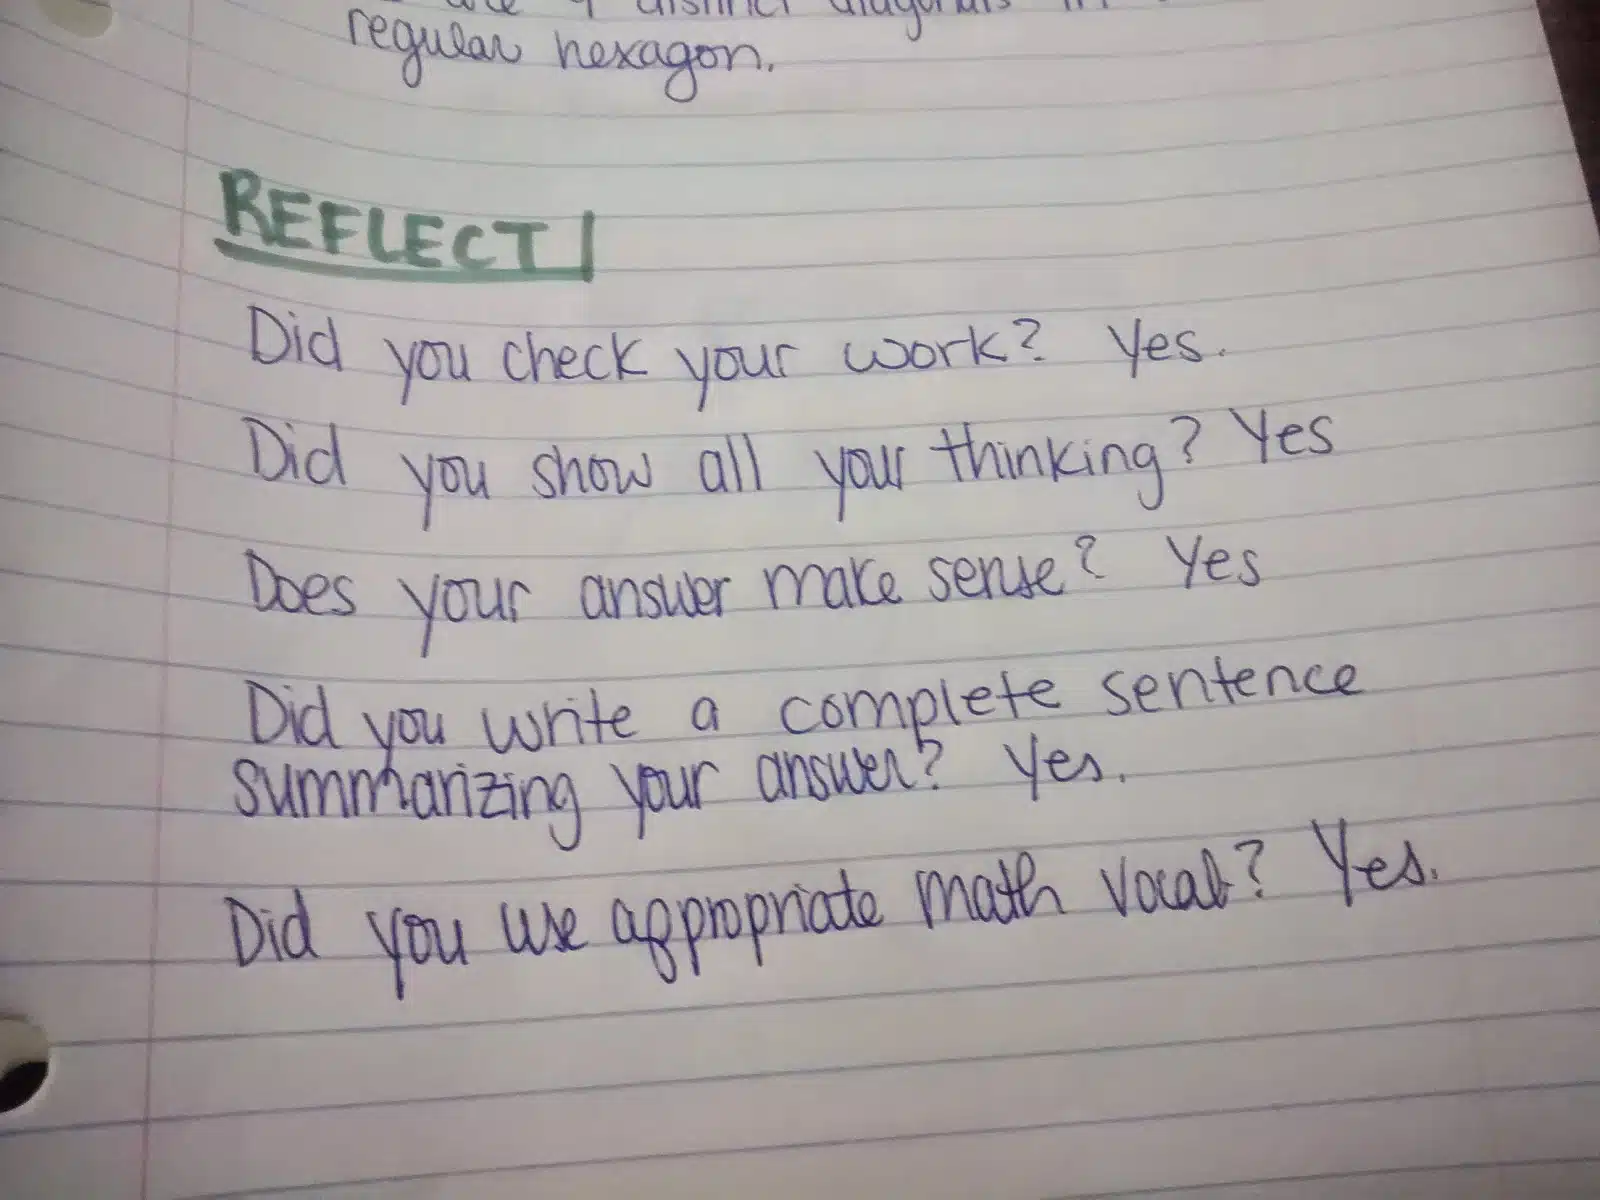 are 9 distinct diagonals in
regular hexagon.
REFLECT!
Did you check your work? Yes.
Did you show all your thinking? Yes
Does your answer make sense? Yes
Did you write a complete sentence
summarizing your answer? Yes.
Did you use appropriate math vocab? Yes.